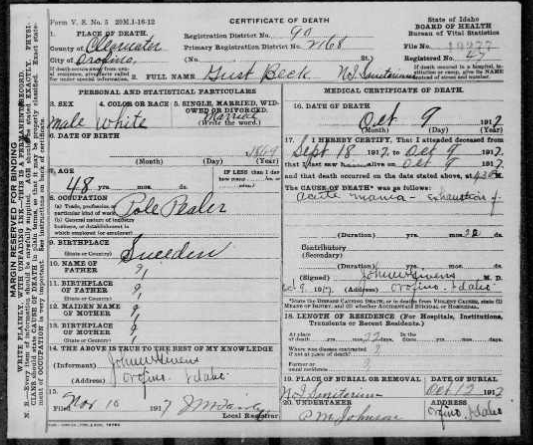 Form V. S. No. 5 20M.1-18-12
CERTIFICATE OF DEATH
State of Idaho
BOARD OF HEALTH
Bureau of Vital Statistics
1. PLACE OF DEATH.
Registration District No. 90
County of Clearwater
Primary Registration District No.
File No.
City of Orofino,
(No.
St.)
Registered No.
If death occurs away from usual residence, give facts called for under special information.
2. FULL NAME Gust Beck
If death occurred in a hospital, institution or camp, give its NAME instead of street and number.
PERSONAL AND STATISTICAL PARTICULARS
3. SEX
4. COLOR OR RACE
5. SINGLE, MARRIED, WIDOWED OR DIVORCED.
(Write the word.)
Male White Married
6. DATE OF BIRTH
1869
(Month) (Day) (Year)
7. AGE
IF LESS than 1 day
48 yrs. mos. ds.
8. OCCUPATION
(a) Trade, profession, or particular kind of work
(b) General nature of industry, business, or establishment in which employed or employer
Pole
9. BIRTHPLACE
(State or Country)
Sweeden
10. NAME OF FATHER
?
11. BIRTHPLACE OF FATHER
(State or Country)
?
12. MAIDEN NAME OF MOTHER
?
13. BIRTHPLACE OF MOTHER
(State or Country)
?
14. THE ABOVE IS TRUE TO THE BEST OF MY KNOWLEDGE
(Informant) John W Givens
(Address) Orofino, Idaho
15.
Filed Nov 10 1917
Local Registrar
MEDICAL CERTIFICATE OF DEATH
16. DATE OF DEATH
Oct 9 1917
(Month) (Day) (Year)
17. I HEREBY CERTIFY, That I attended deceased from
Sept 18 1917, to Oct 9 1917
that I last saw him alive on Oct 9 1917
and that death occurred on the date stated above, at
The CAUSE OF DEATH* was as follows:
acute mania - exhaustion of
(Duration) yrs. mos. ds.
Contributory
(Secondary)
(Duration) yrs. mos. ds.
(Signed) John W Givens M. D.
1917 (Address) Orofino, Idaho
*State the DISEASE CAUSING DEATH, or in deaths from VIOLENT CAUSES, state (1) MEANS OF INJURY; and (2) whether ACCIDENTAL, SUICIDAL or HOMICIDAL.
18. LENGTH OF RESIDENCE (For Hospitals, Institutions, Transients or Recent Residents.)
At place of death yrs. mos. ds.
State yrs. mos. ds.
Where was disease contracted if not at place of death? ?
Former or usual residence ?
19. PLACE OF BURIAL OR REMOVAL
DATE OF BURIAL
Oct 12 1917
20. UNDERTAKER
ADDRESS
P M Johnson
Orofino, Idaho
MARGIN RESERVED FOR BINDING
WRITE PLAINLY, WITH UNFADING INK—THIS IS A PERMANENT RECORD.